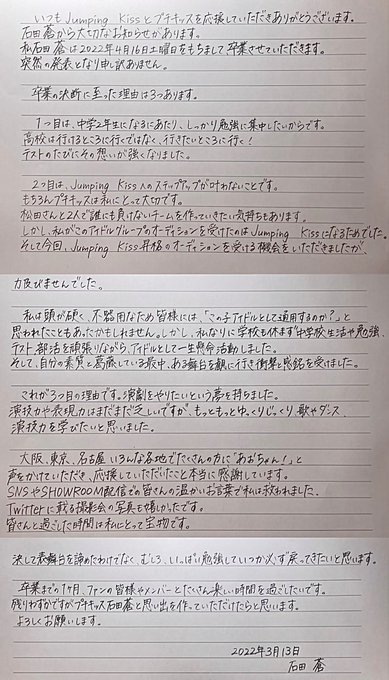 いつも Jumping Kissとプチキッスを応援していただきありがとうございます。
石田蒼から大切なお知らせがあります。
私石田蒼は2022年4月16日土曜日をもちまして卒業させていただきます。
突然の発表となり申し訳ありません。
卒業の決断に至った理由は3つあります。
1つ目は、中学2年生になるにあたり、しっかり勉強に集中したいからです。
高校は行けるところに行くではなく、行きたいところに行く!
テストのたびにその想いが強くなりました。
2つ目は、Jumping Kissへのステップアップが叶わないことです。
もちろんプチキッスは私にとって大切です。
松田さんと2人で誰にも負けないチームを作っていきたい気持ちもあります。
しかし、私がこのアイドルグループのオーディションを受けたのはJumping Kissになるためでした。
そして今回、Jumping Kiss昇格のオーディションを受ける機会をいただきましたが、
力及びませんでした。
私は頭が硬く、不器用なため皆様には、「この子アイドルとして通用するのか?」と
思われたこともあったかもしれません。しかし、私なりに学校も休まず中学校生活や勉強、
テスト、部活を頑張りながら、アイドルとして一生懸命活動しました。
そして、自分の素質と葛藤している最中、ある舞台を観に行き衝撃と感銘を受けました。
これが3つ目の理由です。演劇をやりたいという夢を持ちました。
演技力や表現力はまだまだ乏しいですが、もっともっとゆっくりじっくり、歌やダンス、
演技力を学びたいと思いました。
大阪、東京、名古屋 いろんな各地でたくさんの方に"あおちゃん!"と
声をかけていただき、応援していただいたこと本当に感謝しています。
SNSやSHOWROOM配信での皆さんの温かいお言葉で私は救われました。
Twitterに載る撮影会の写真も嬉しかったです。
皆さんと過ごした時間は私にとって宝物です。
決して表舞台を諦めたわけでなく、むしろ、いっぱい勉強していつか必ず戻ってきたいと思います。
卒業までの1ヶ月、ファンの皆様やメンバーとたくさん楽しい時間を過ごしたいです。
残りわずかですがプチキッス石田蒼と思い出を作っていただけたらと思います。
よろしくお願いします。
2022年3月13日
石田 蒼